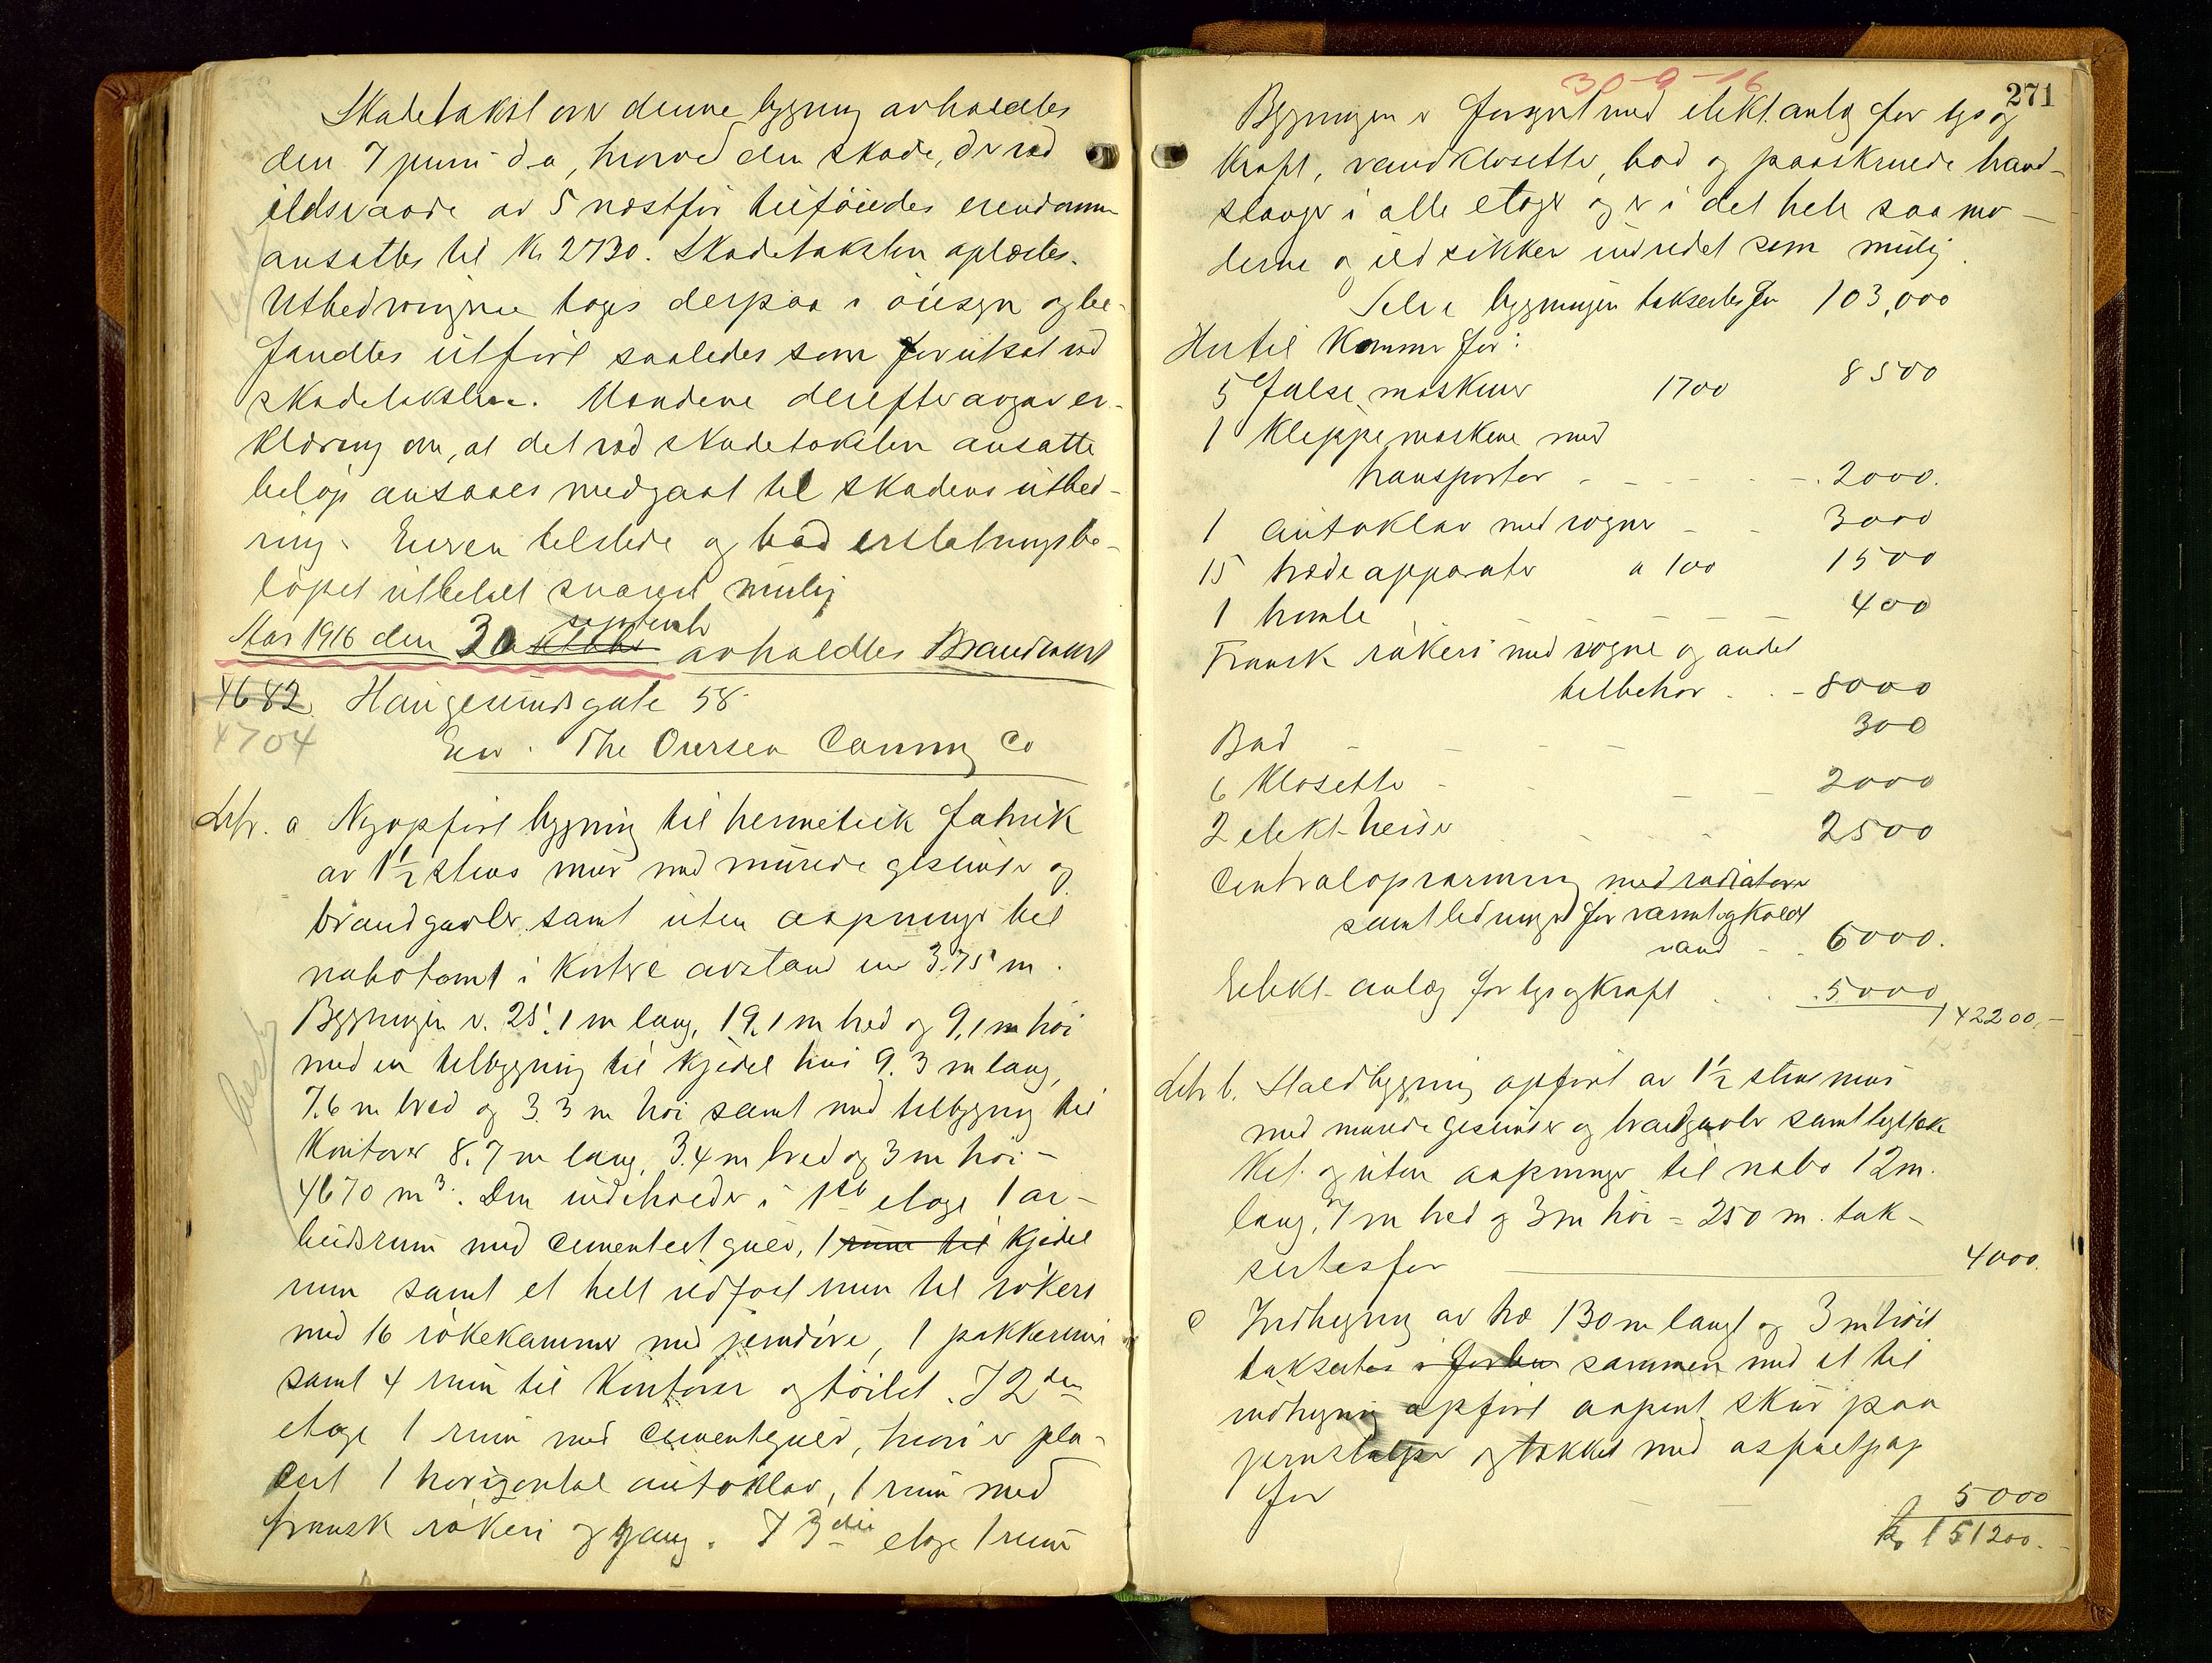 Skadetakst over denne bygning avholdtes
den 7 juni d.a, hvorved den skade, der ved
ildsvaade av 5 næstfør tilføiedes eiendommen
ansattes til Kr 2730. Skadetaksten oplæstes.
Utbedringene toges derpaa i øiesyn og be-
fandtes utført saaledes som forutsat ved
skadetaksten. Mændene derefter avgav er-
klæring om, at det ved skadetaksten ansatte
beløp ansaaes medgaat til skadens utbed-
ring. Eieren tilstede og bad erstatningsbe-
løpet utbetalt snarest mulig
september
Aar 1916 den 30 oktober avholdtes Brandtakst
4682 Haugesundsgate 58
4704
Eier. The Oversea Canning Co
Litr. a Nyopført bygning til hermetik fabrik
av 1 1/2 stens mur med murede gesimser og
brandgavler samt uten aapninger til
nabotomt i kortere avstand en 3.75 m.
Bygningen er 25.1 m lang, 19.1 m bred og 9.1 m høi
med en tilbygning til kjedel hus 9.3 m lang,
7.6 m bred og 3.3 m høi samt med tilbygning til
Kontorer 8.7 m lang, 3.4 m bred og 3 m høi -
4670 m³. Den indeholder i 1ste etage 1 ar-
beidsrum med cementert gulv, 1 rum til kjedel
rum samt et helt ildfast rum til røkeri
med 16 røkekammer med jerndøre, 1 pakkerum
samt 4 rum til Kontorer og toilet. I 2den
etage 1 rum med cementgulv, hvori er pla-
cert 1 horizontal autoklav, 1 rum med
fransk røkeri og gang. I 3die etage 1 rum
30-9-16
271
Bygningen er forsynt med elekt. anlæg for lys og
Kraft, vandklosetter, bad og paaskruede vand-
slanger i alle etager og er i det hele saa mo-
derne og ildsikker indredet som mulig.
Selve bygningen taksertes for 103,000
Hertil kommer for:
5 false maskiner 1700 8500
1 Klippemaskine med
transportør - - - - - 2000.
1 autoklav med vogner - - 3000
15 træde apparater a 100 1500
1 tromle 400
Fransk røkeri med vogne og andet
tilbehør - - 8000
Bad - - - - 300
6 Klosetter - - - - 2000
2 elekt-heiser - - - 2500
Centralopvarming med radiatorer
samt ledninger for varmt og koldt
vand - - 6000.
Elekt- anlæg for lys og Kraft . . 5000
142200.-
Litr b. Staldbygning opført av 1 1/2 stens mur
med murede gesimser og brandgavler samt teglsten
og uten aapninger til nabo 12 m.
lang, 7 m bred og 3 m høi = 250 m. tak-
sertes for 4000.
c Indhegning av træ 130 m langt og 3 m høit
taksertes i forbin sammen med et til
indhegning opført aapent skur paa
jernstolper og tækket med asfaltpap
for - - 5000
Kr 151200.-